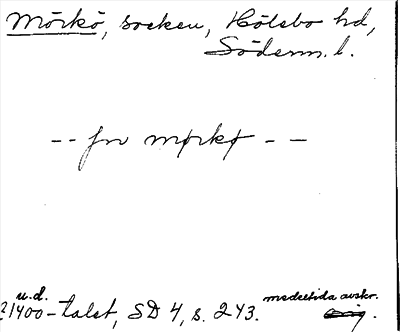 Mörkö, socken, Hölebo hd,
Söderm. l.
-- fM mørkø --
u.d.
?1400-talet, SD 4, s. 243. medeltida avskr.